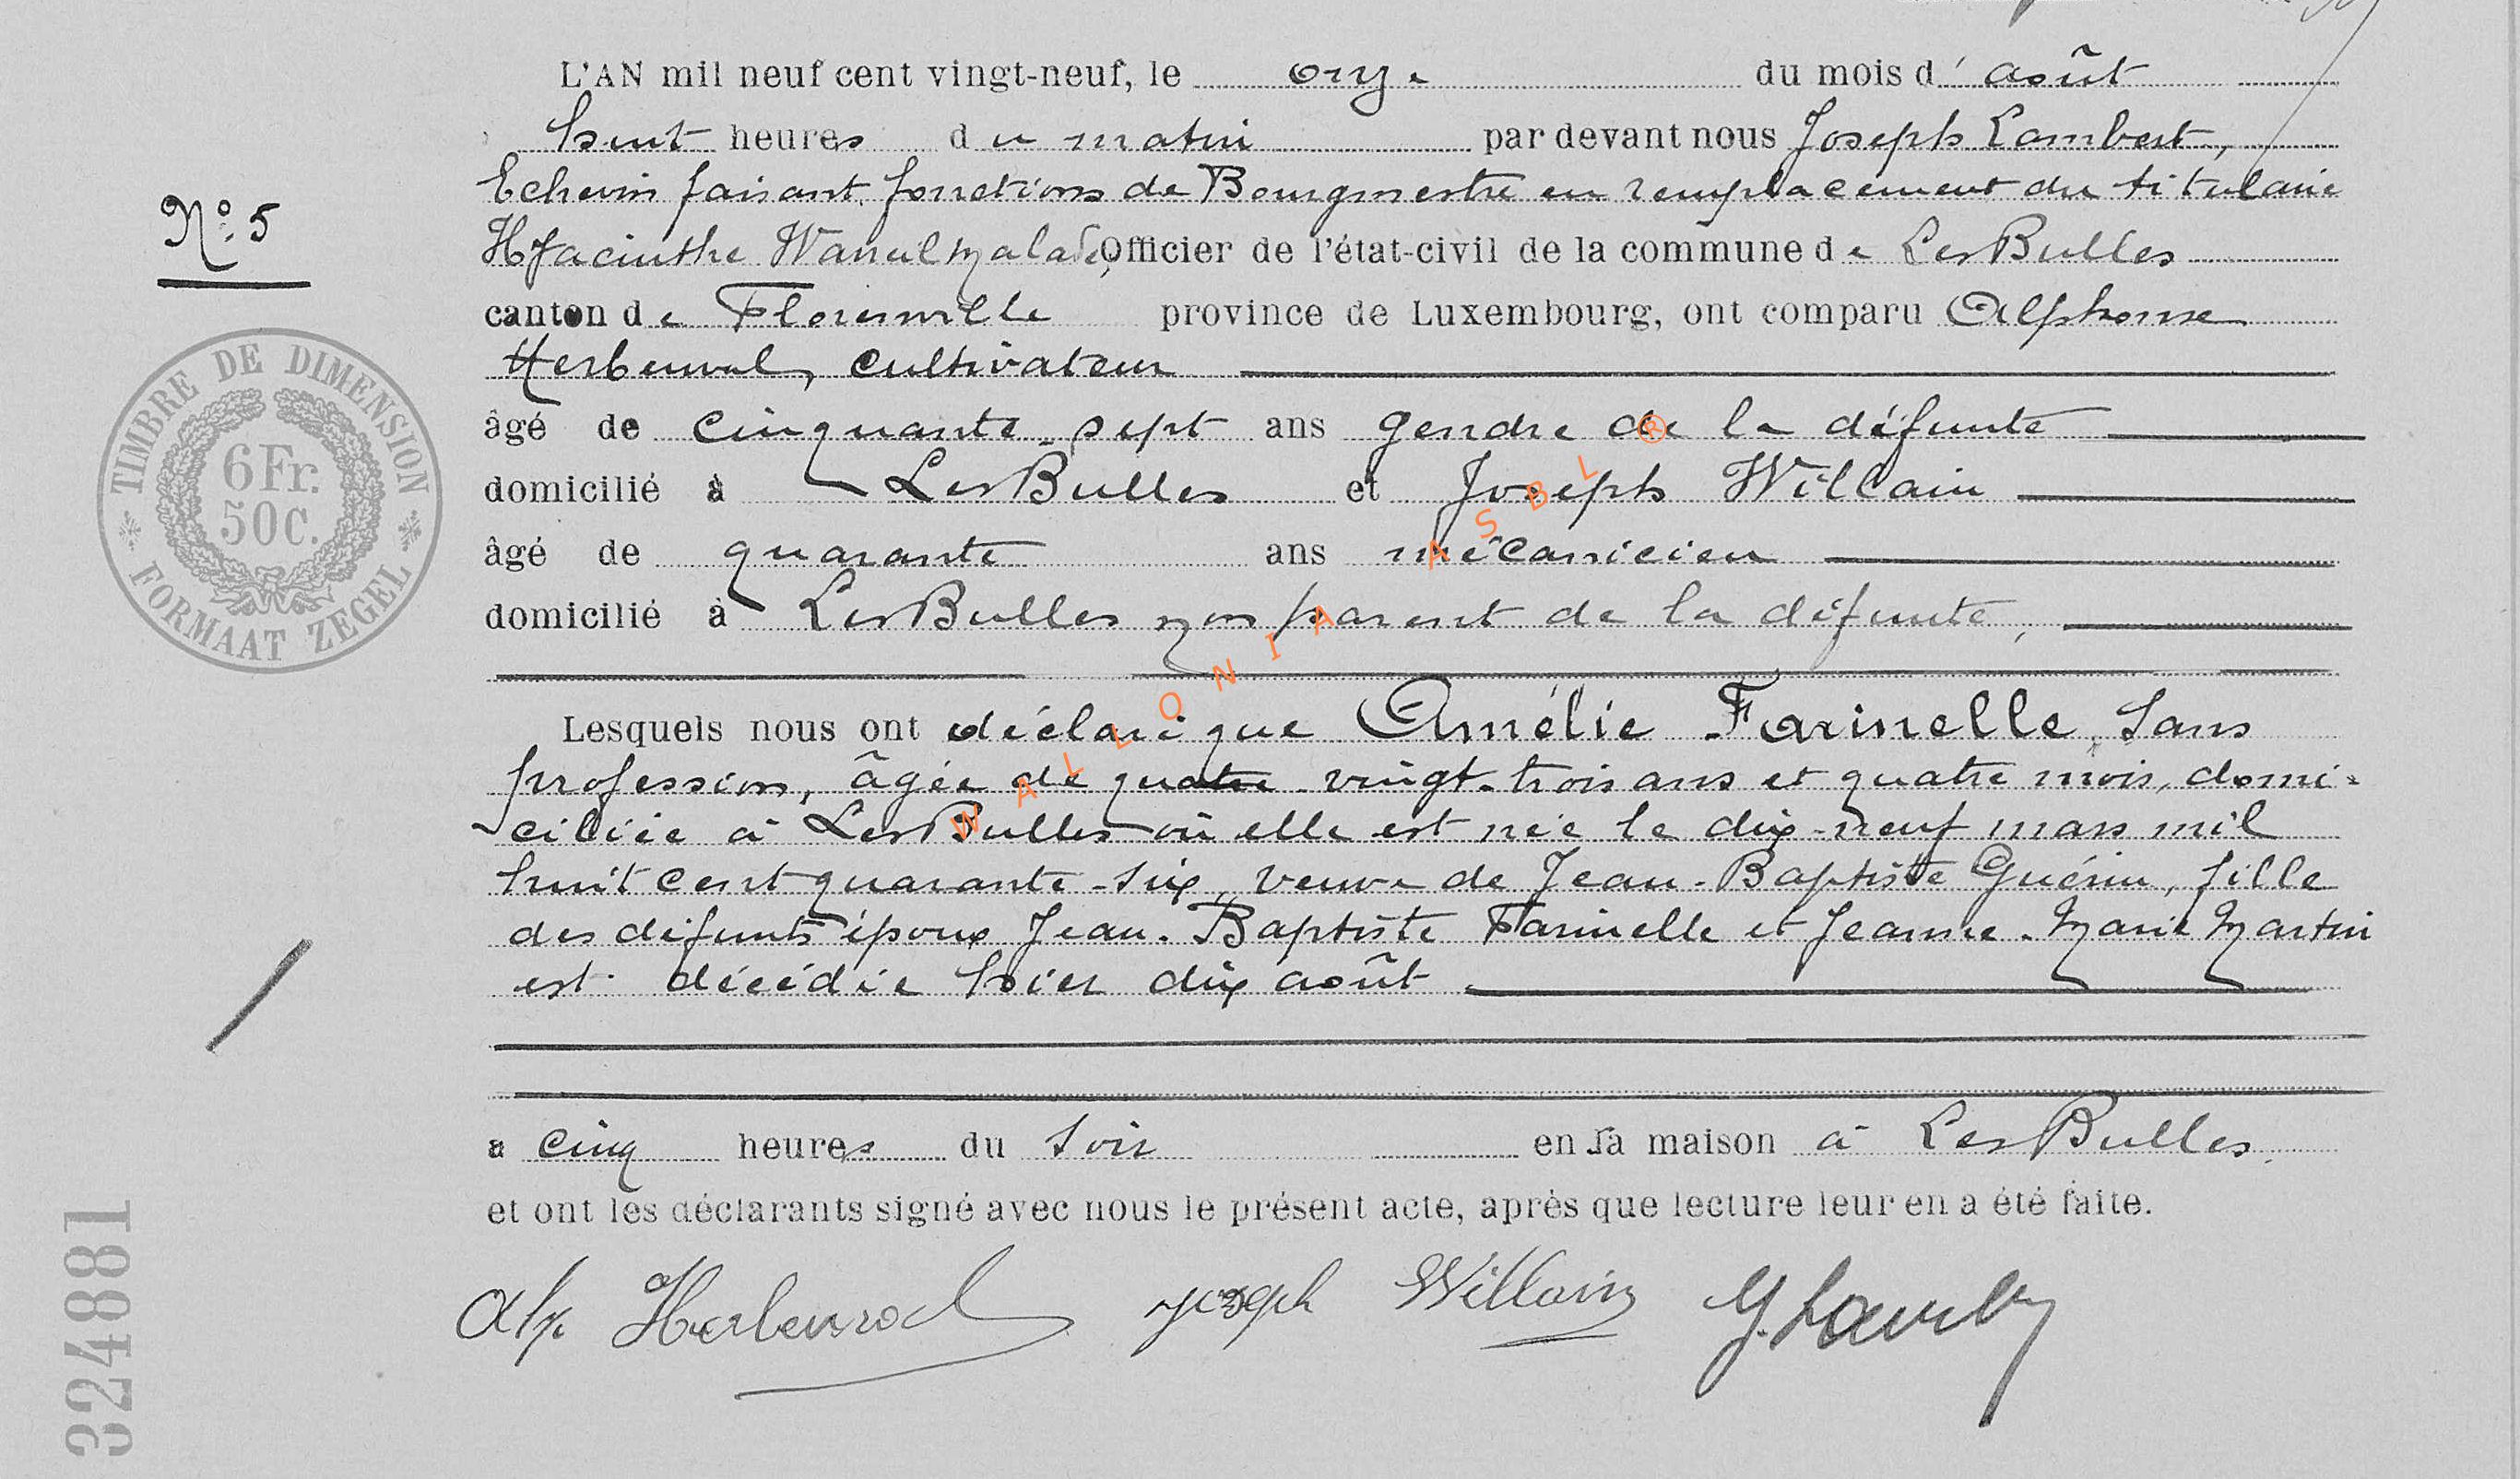 L'AN mil neuf cent vingt-neuf, le onze du mois d'août
huit heures du matin par devant nous Joseph Lambert,
Echevin faisant fonctions de Bourgmestre en remplacement du titulaire
Hyacinthe malade, Officier de l'état-civil de la commune de LesBulles
N° 5
canton de Florenville province de Luxembourg, ont comparu Alphonse
Herbeuval, cultivateur
âgé de cinquante-sept ans gendre de la défunte
domicilié à LesBulles et Joseph Willain
âgé de quarante ans mécanicien
domicilié à LesBulles non parent de la défunte,
TIMBRE DE DIMENSION
6Fr.
50c.
FORMAAT ZEGEL
Lesquels nous ont déclaré que Amélie Farinelle, sans
profession, âgée de quatre-vingt-trois ans et quatre mois, domi-
ciliée à LesBulles où elle est née le dix-neuf mars mil
huit cent quarante-six, veuve de Jean-Baptiste Guérin, fille
des défunts époux Jean-Baptiste Farinelle et Jeanne-Marie Martin
est décédée hier dix août
à cinq heures du soir en sa maison à LesBulles.
et ont les déclarants signé avec nous le présent acte, après que lecture leur en a été faite.
Alp Herbeuval Joseph Willain J. Lambert
324881
WALLONIA ASBL ®